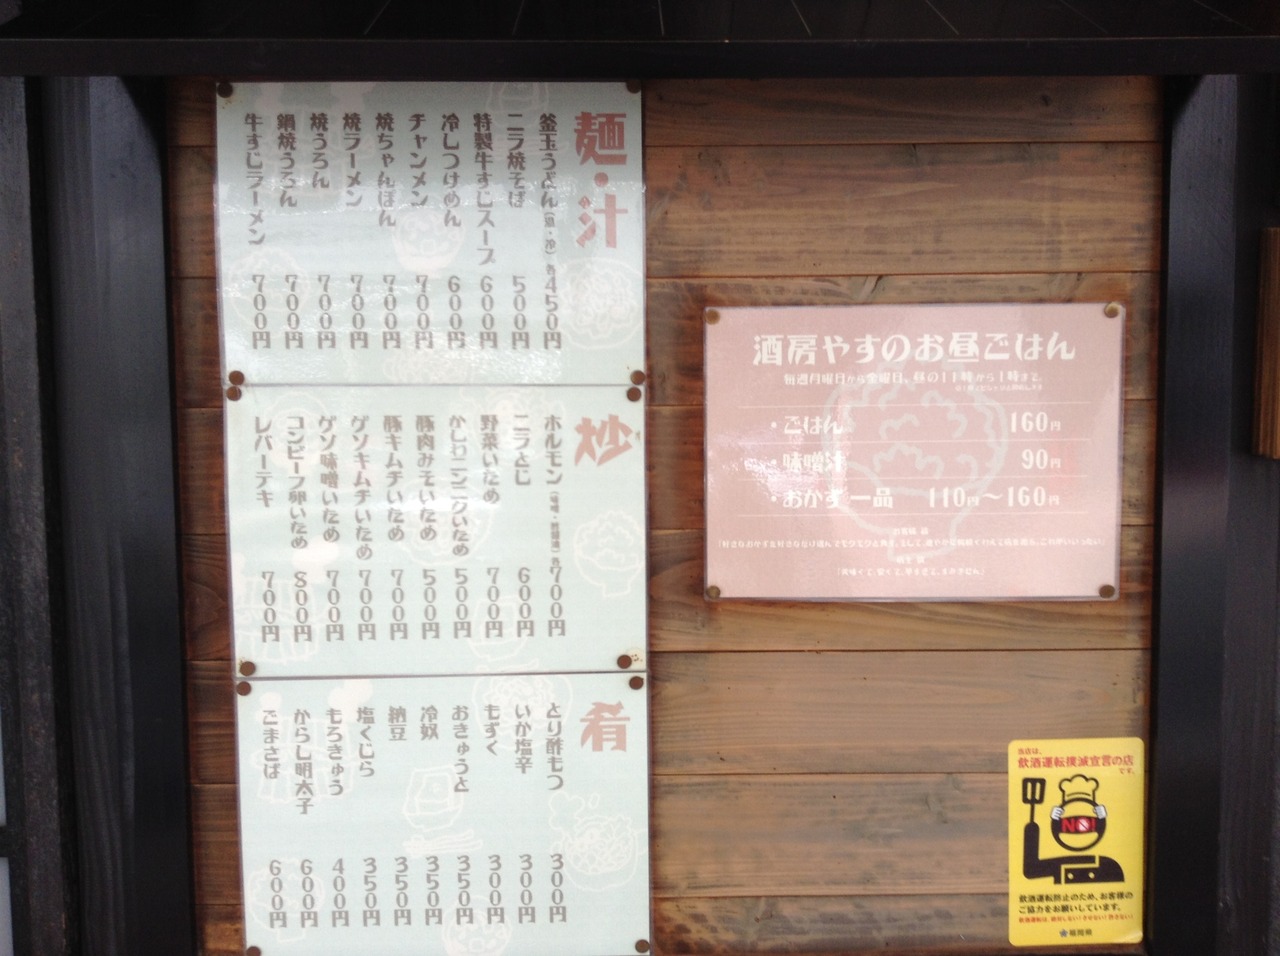 麺・汁
釜玉うどん(温・冷) 各450円
ニラ焼そば 500円
特製牛すじスープ 600円
冷しつけめん 600円
チャンメン 700円
焼ちゃんぽん 700円
焼ラーメン 700円
焼うどん 700円
鍋焼うどん 700円
牛すじラーメン 700円
炒
ホルモン(味噌・醤油) 各700円
ニラとじ 600円
野菜いため 700円
かしわニンニクいため 500円
豚肉みそいため 500円
豚キムチいため 700円
ゲソキムチいため 700円
ゲソ味噌いため 700円
コンビーフ卵いため 800円
レバーテキ 700円
肴
とり酢もつ 300円
いか塩辛 300円
もずく 300円
おきゅうと 350円
冷奴 350円
納豆 350円
塩くじら 350円
もろきゅう 400円
からし明太子 600円
ごまさば 600円
酒房やすのお昼ごはん
毎週月曜日から金曜日、昼の11時から1時まで。
・ごはん 160円
・味噌汁 90円
・おかず一品 110円〜160円
お客様 談
店主 談
「美味くて、安くて、早すぎて、すみません」
当店は、
飲酒運転撲滅宣言の店
です。
NO!
飲酒運転防止のため、お客様の
ご協力をお願いしています。
飲酒運転は、絶対しない!させない!許さない!
福岡県